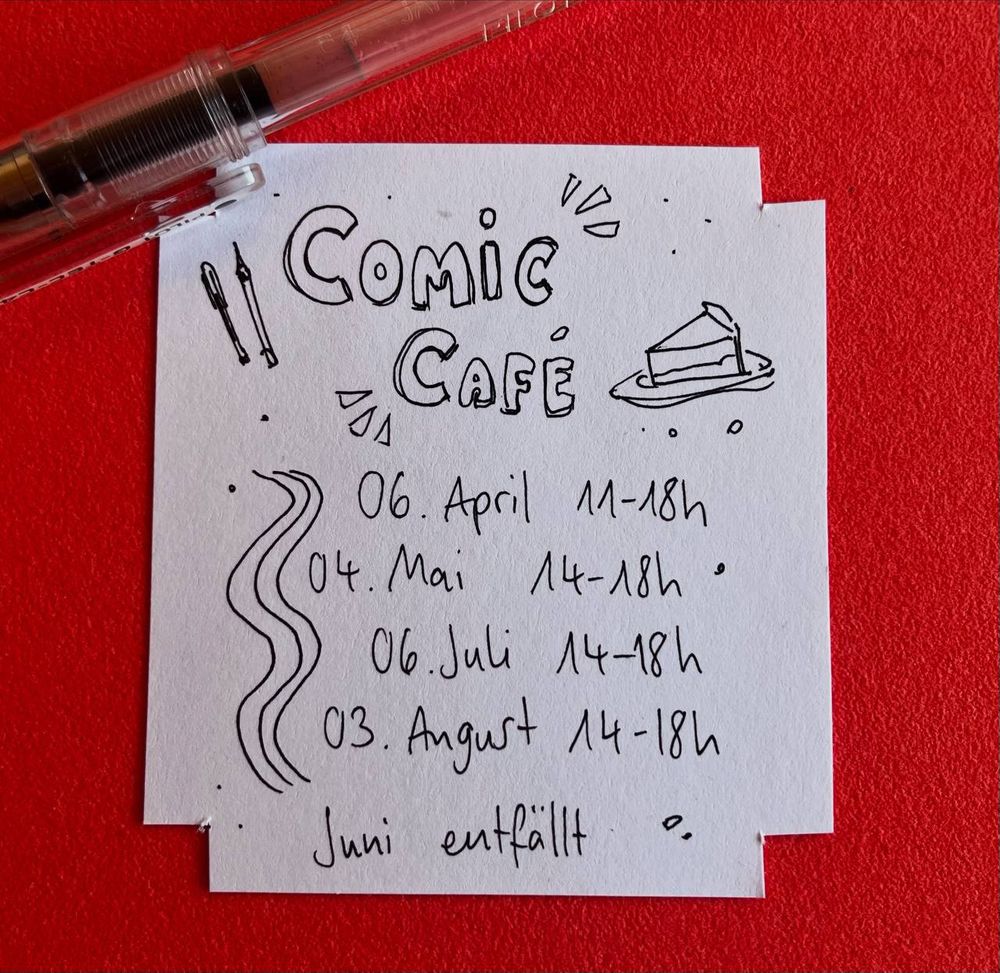 PILOT
COMIC
CAFÉ
06. April 11-18h
04. Mai 14-18h
06. Juli 14-18h
03. August 14-18h
Juni entfällt